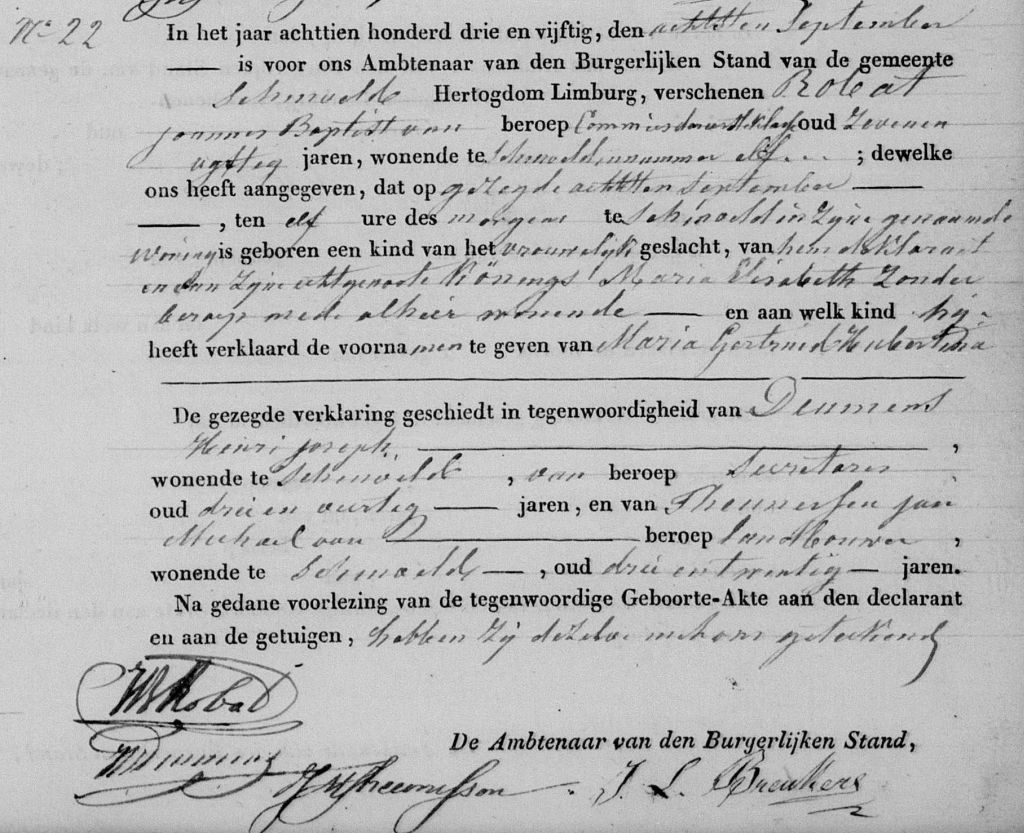 No 22 In het jaar achttien honderd drie en vijftig, den achtsten September
is voor ons Ambtenaar van den Burgerlijken Stand van de gemeente
Schinveld Hertogdom Limburg, verschenen Robat
joannes Baptist van beroep Commies oud Zeven en
vyftig jaren, wonende te Schinveld in nummer elf ; dewelke
ons heeft aangegeven, dat op gezegde achtsten September
, ten elf ure des morgens te Schinveld in Zyne genaamde
Woning is geboren een kind van het vrouwelijk geslacht, van hem deklarant
en van Zyne echtgenoote Könings Maria Elisabeth Zonder
beroep mede alhier wonende en aan welk kind hij
heeft verklaard de voornamen te geven van Maria Gertruid Hubertina
De gezegde verklaring geschiedt in tegenwoordigheid van Deumens
Henri joseph ,
wonende te Schinveld , van beroep Secretaris
oud drie en veertig jaren, en van Theunissen jan
Michael van beroep landbouwer ,
wonende te Schinveld , oud drie en twintig jaren.
Na gedane voorlezing van de tegenwoordige Geboorte-Akte aan den declarant
en aan de getuigen, hebben Zij dezelve met ons geteekend
Robat
De Ambtenaar van den Burgerlijken Stand,
Theunissen J. L. Breukers